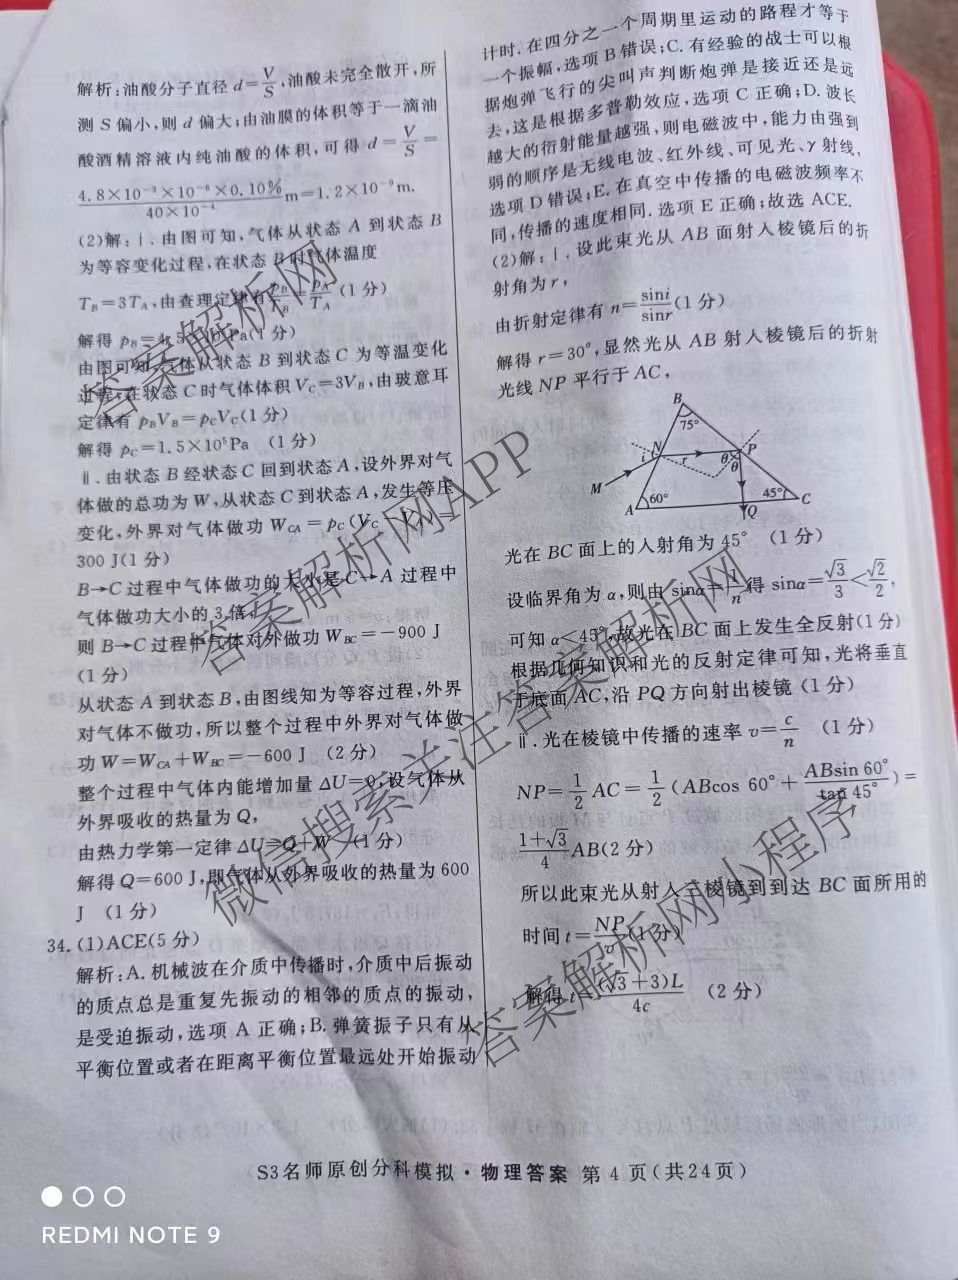 解析:油酸分子直径 d=V/S,油酸未完全散开,所
测 S 偏小,则 d 偏大;由油膜的体积等于一滴油
酸酒精溶液内纯油酸的体积,可得 d=V/S=
4.8×10⁻³×10⁻⁶×0.10%/40×10⁻⁴ m=1.2×10⁻⁹m.
(2)解:Ⅰ.由图可知,气体从状态 A 到状态 B
为等容变化过程,在状态 B 时气体温度
T_B=3T_A,由查理定律有 p_B/T_B=p_A/T_A (1分)
解得 p_B= Pa(1分)
由图可知 气体从状态 B 到状态 C 为等温变化
过程,在状态 C 时气体体积 V_C=3V_B,由玻意耳
定律有 p_BV_B=p_CV_C(1分)
解得 p_C=1.5×10⁵Pa (1分)
Ⅱ.由状态 B 经状态 C 回到状态 A,设外界对气
体做的总功为 W,从状态 C 到状态 A,发生等压
变化,外界对气体做功 W_CA=p_C(V_C
300 J(1分)
B→C 过程中气体做功的大小是 C→A 过程中
气体做功大小的 3 倍,
则 B→C 过程中气体对外做功 W_BC=-900 J
(1分)
从状态 A 到状态 B,由图线知为等容过程,外界
对气体不做功,所以整个过程中外界对气体做
功 W=W_CA+W_BC=-600 J (2分)
整个过程中气体内能增加量 ΔU=0,设气体从
外界吸收的热量为 Q,
由热力学第一定律 ΔU=Q+W (1分)
解得 Q=600 J,即气体从外界吸收的热量为 600
J (1分)
34.(1)ACE(5分)
解析:A.机械波在介质中传播时,介质中后振动
的质点总是重复先振动的相邻的质点的振动,
是受迫振动,选项 A 正确;B.弹簧振子只有从
平衡位置或者在距离平衡位置最远处开始振动
计时.在四分之一个周期里运动的路程才等于
一个振幅,选项 B 错误;C.有经验的战士可以根
据炮弹飞行的尖叫声判断炮弹是接近还是远
去,这是根据多普勒效应,选项 C 正确;D.波长
越大的衍射能量越强,则电磁波中,能力由强到
弱的顺序是无线电波、红外线、可见光、γ射线,
选项 D 错误;E.在真空中传播的电磁波频率不
同,传播的速度相同.选项 E 正确;故选 ACE.
(2)解:Ⅰ.设此束光从 AB 面射入棱镜后的折
射角为 r,
由折射定律有 n=sini/sinr(1分)
解得 r=30°,显然光从 AB 射入棱镜后的折射
光线 NP 平行于 AC,
B
75°
N
i
r
θ
P
θ
M
60°
45°
A
Q
C
光在 BC 面上的入射角为 45° (1分)
设临界角为 α,则由 sinα=1/n得 sinα=√3/3<√2/2,
可知 α<45°,故光在 BC 面上发生全反射(1分)
根据几何知识和光的反射定律可知,光将垂直
于底面 AC,沿 PQ 方向射出棱镜 (1分)
Ⅱ.光在棱镜中传播的速率 v=c/n (1分)
NP=1/2 AC=1/2(ABcos 60°+ABsin 60°/tan 45°)=
1+√3/4 AB(2分)
所以此束光从射入三棱镜到到达 BC 面所用的
时间 t=NP/v(1分)
解得 t=(√3+3)L/4c (2分)
S3名师原创分科模拟·物理答案 第4页(共24页)
答案解析网
答案解析网APP
微信搜索关注答案解析网
答案解析网小程序
REDMI NOTE 9